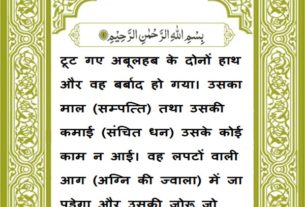 بِسْمِ اللهِ الرَّحْمٰنِ الرَّحِيْمِ
टूट गए अबूलहब के दोनों हाथ
और वह बर्बाद हो गया। उसका
माल (सम्पत्ति) तथा उसकी
कमाई (संचित धन) उसके कोई
काम न आई। वह लपटों वाली
आग (अग्नि की ज्वाला) में जा
पड़ेगा और उसकी जोरू जो